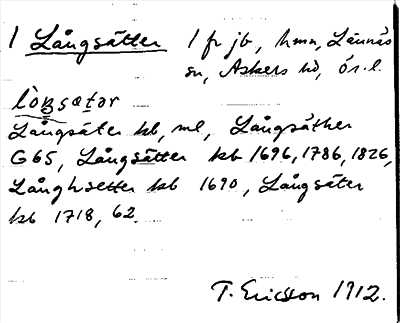 1 Långsätter 1 fr jb, hmn, Lännäs
sn, Askers hd, ör. l.
lòŋsætər
Långsäter kb, ml, Långsäther
G65, Långsätter kb 1696, 1786, 1826,
Långhsetter kb 1690, Långsäter
kb 1718, 62.
T. Ericsson 1912.